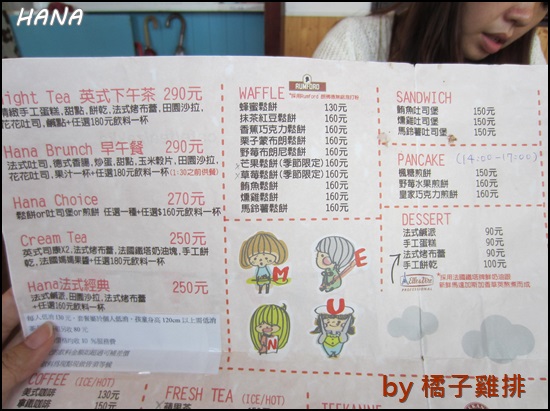 HANA
night Tea 英式下午茶 290元
精緻手工蛋糕,甜點,餅乾,法式烤布蕾,田園沙拉,
花花吐司,鹹點+任選180元飲料一杯
Hana Brunch 早午餐 290元
法式吐司,德式香腸,炒蛋,甜點,玉米穀片,田園沙拉,
花花吐司,果汁一杯+任選180元飲料一杯(1:30之前供餐)
Hana Choice 270元
鬆餅or吐司堡or煎餅 任選一種+任選$160元飲料一杯
Cream Tea 250元
英式司康X2,法式烤布蕾,法國鐵塔奶油塊,手工餅
乾,法國媽媽果醬+任選180元飲料一杯
Hana法式經典 250元
法式鹹派,田園沙拉,法式烤布蕾
+任選160元飲料一杯
RUMFORD
WAFFLE
蜂蜜鬆餅 130元
抹茶紅豆鬆餅 160元
香蕉巧克力鬆餅 160元
栗子蒙布朗鬆餅 160元
野莓布朗尼鬆餅 160元
芒果鬆餅(季節限定) 160元
x草莓鬆餅(季節限定) 160元
鮪魚鬆餅 160元
燻雞鬆餅 160元
馬鈴薯鬆餅 160元
M
E
N
U
SANDWICH
鮪魚吐司堡 150元
燻雞吐司堡 150元
馬鈴薯吐司堡 150元
PANCAKE (14:00-17:00)
楓糖煎餅 150元
野莓水果煎餅 160元
皇家巧克力煎餅 160元
DESSERT
法式鹹派 90元
手工蛋糕 90元
法式烤布蕾 90元
手工餅乾 100元
*採用法國鐵塔牌鮮奶油跟
COFFEE (ICE/HOT)
美式咖啡 130元
拿鐵咖啡 150
FRESH TEA (ICE/HOT)
by 橘子雞排